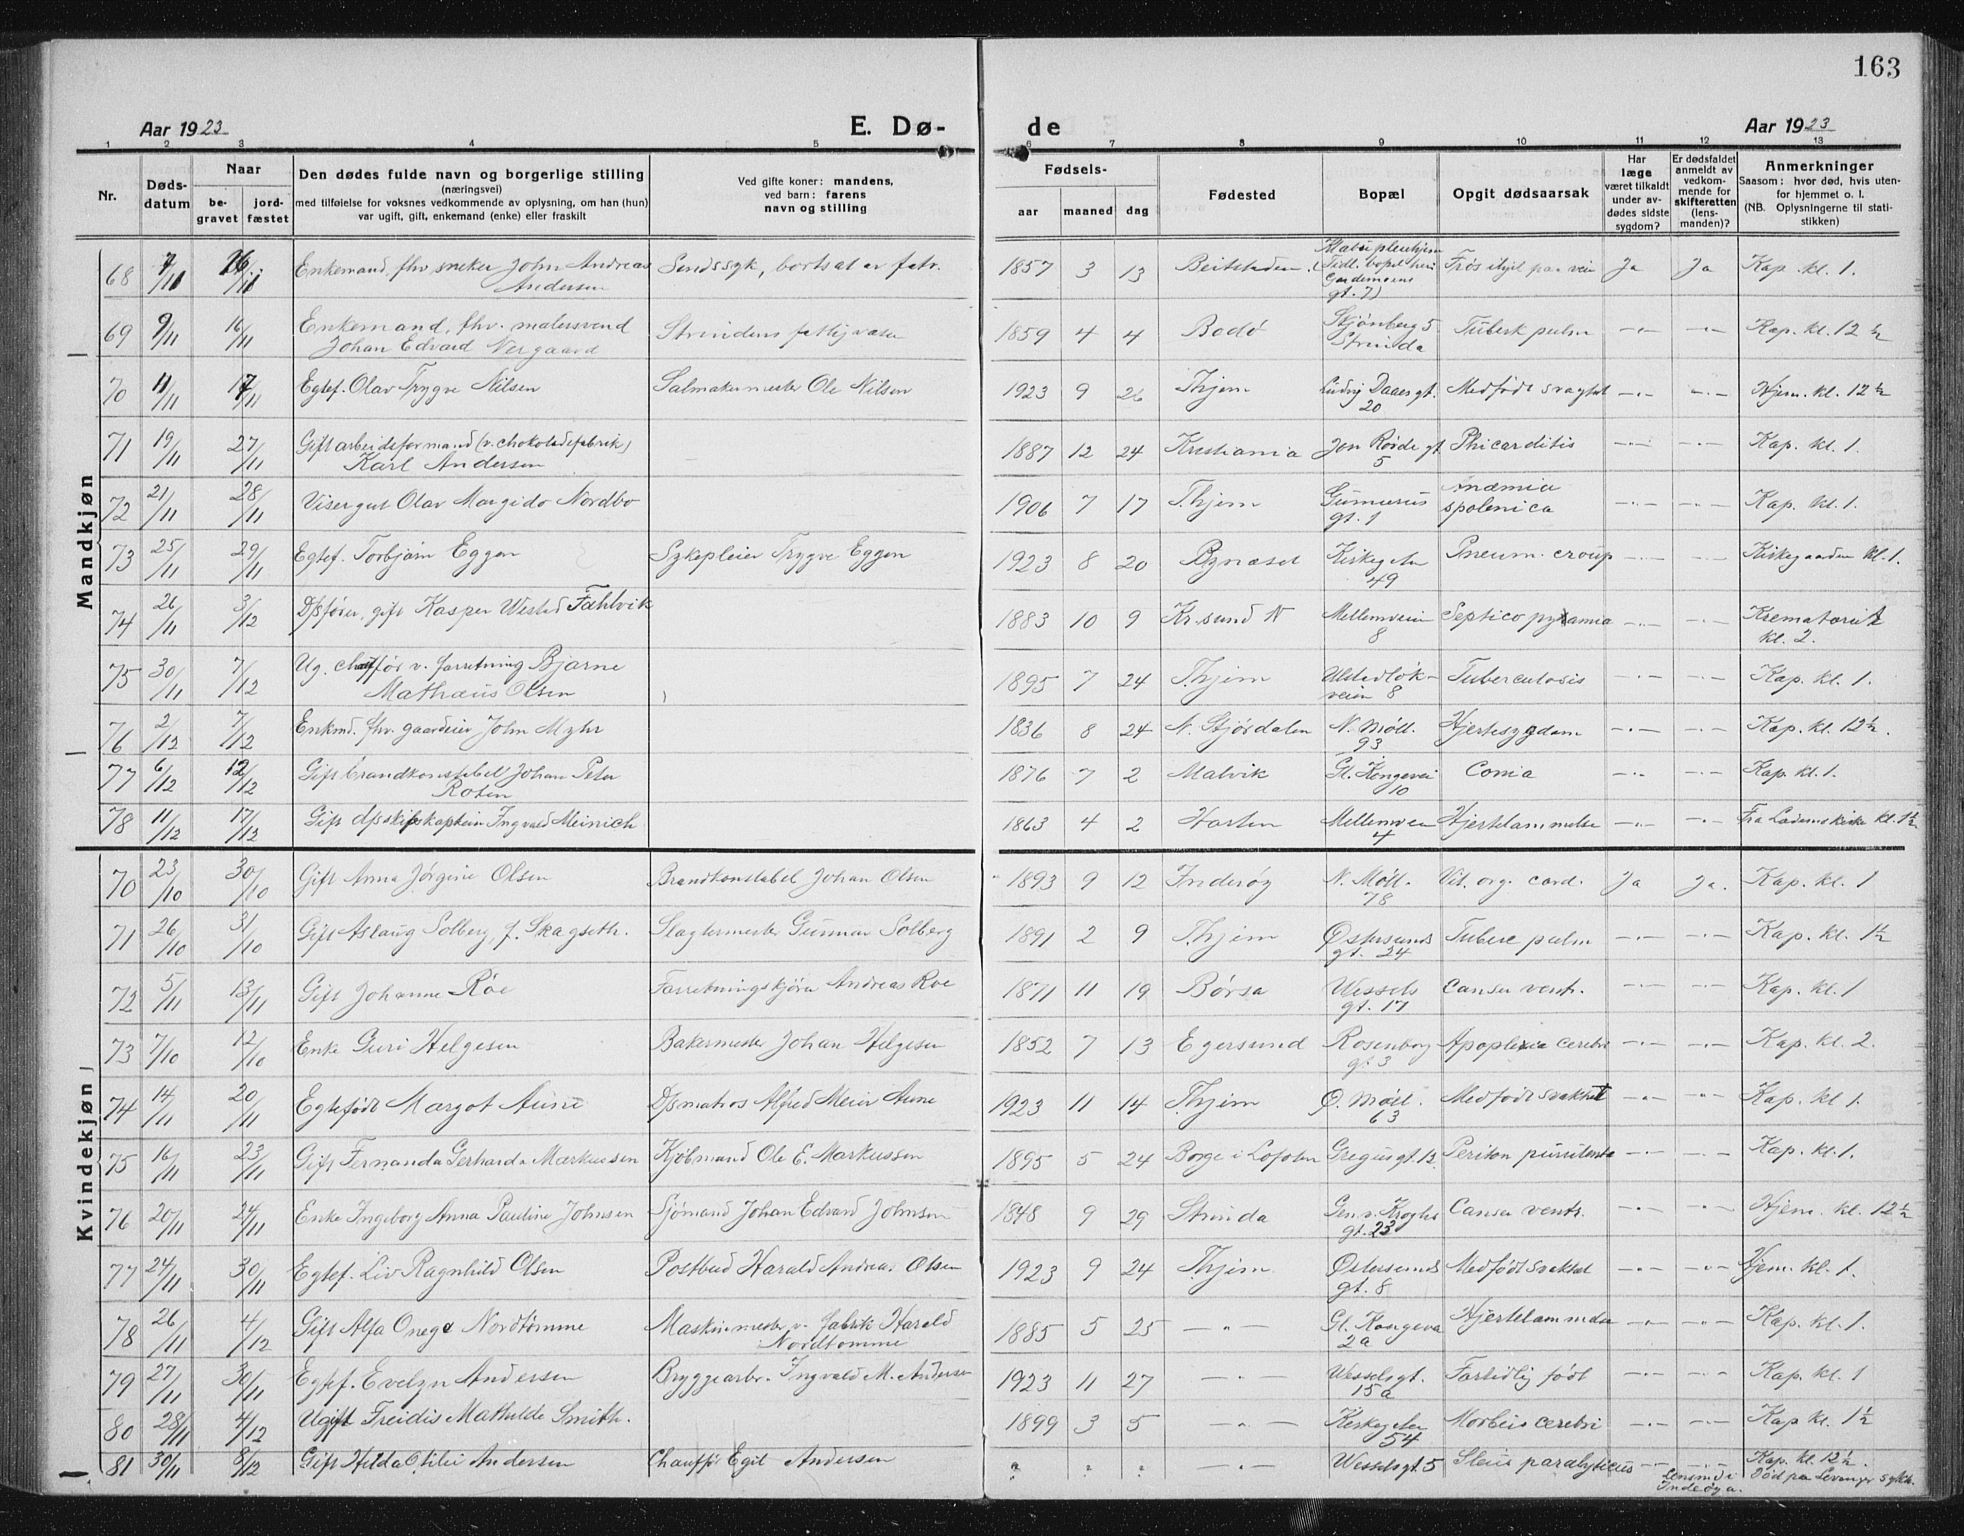 163
Aar 1923
E. Dø-
de
Aar 1923
1 2 3 4 5 6 7 8 9 10 11 12 13
Nr.
Døds-
datum
Naar
be-
gravet
jord-
fæstet
Den dødes fulde navn og borgerlige stilling
(næringsvei)
med tilføielse for voksnes vedkommende av oplysning, om han (hun)
var ugift, gift, enkemand (enke) eller fraskilt
Ved gifte koner: mandens,
ved barn: farens
navn og stilling
Fødsels-
aar maaned dag
Fødested
Bopæl
Opgit dødsaarsak
Har
læge
været tilkaldt
under av-
dødes sidste
sygdom?
Er dødsfaldet
anmeldt av
vedkom-
mende for
skifteretten
(lens-
manden)?
Anmerkninger
Saasom: hvor død, hvis uten-
for hjemmet o. l.
(NB. Oplysningerne til stati-
stikken)
Mandkjøn
68 7/11 16/11 Enkemand, fhv. sneker John Andreas Andersen Sindssyk, bortsat av fatv. 1857 3 13 Beitstaden Tidl. bopæl gt. 7) Frøs ihjel paa vei Ja Ja Kap. kl. 1.
69 9/11 16/11 Enkemand, fhv. malersvend Johan Edvard Vergaard Strindens fattigvæsen 1859 4 4 Bodö Stjønberg 5 Strinda Tuberk pulm -"- -"- Kap. kl. 12 ½
70 11/11 17/11 Egtef. Olav Trygve Nilsen Salmakermester Ole Nilsen 1923 9 26 Thjem Ludvig Daaes gt. 20 Medfødt svaghet -"- -"- Hjem. kl. 12 ½
71 19/11 27/11 Gift arbeidsformand (v. chokoladefabrik) Karl Andersen 1887 12 24 Kristiania Jon Rørde gt 5 -"- -"- Kap. kl. 1.
72 21/11 28/11 Visergut Olav Margido Nordbo 1906 7 17 Thjem Gunnerus gt. 1 Anæmia splenica -"- -"- Kap. kl. 1.
73 25/11 29/11 Egtef. Torbjørn Eggen Sykepleier Trygve Eggen 1923 8 20 Bynæset Kirkegaten 49 Pneum. croup -"- -"- Kirkegaarden kl. 1.
74 26/11 3/12 D/sfører, gift Kasper Wested Fæhlvik 1883 10 9 Kr.sund N Mellemveien 8 Septicopyæmia -"- -"- Krematoriet kl. 2.
75 30/11 7/12 Ug. chaffør v. forretning Bjarne Mathæus Olsen 1895 7 24 Thjem Ulstadløkveien 8 Tuberculosis -"- -"- Kap. kl. 1.
76 2/12 7/12 Enkmd. fhv. gaardeier John Myhr 1836 8 24 N. Stjørdalen N. Møll. 93 Hjertesygdom -"- -"- Kap. kl. 12½.
77 6/12 12/12 Gift brandkonstabel Johan Peter Roten 1876 7 2 Malvik Gl. Kongevei 10 Coma -"- -"- Kap. kl. 1.
78 11/12 17/12 Gift d/sskipskaptein Ingvald Meinich 1863 4 2 Horten Mellemveien 4 Hjertelammelse -"- -"- Fra Lademokirke kl. 1½
Kvindekjøn
70 23/10 30/10 Gift Anna Jørgine Olsen Brandkonstabel Johan Olsen 1893 9 12 Inderøy N. Møll. 78 Vit. org. cord. Ja Ja. Kap. kl. 1
71 26/10 31/10 Gift Aslaug Solberg, f. Skagseth. Slagtermester Gunnar Solberg 1891 2 9 Thjem Østersunds gt. 24 Tuberc pulm -"- -"- Kap. kl. 1½
72 5/11 13/11 Gift Johanne Röe Forretningskjører Andreas Roe 1871 11 19 Börsa Wessels gt. 17 Cancer ventr. -"- -"- Kap. kl. 1
73 7/10 12/10 Enke Guri Helgesen Bakermester Johan Helgesen 1852 7 13 Egersund Rosenborg gt. 3 Apoplexia cerebri -"- -"- Kap. kl. 2.
74 14/11 20/11 Egtefødt Margot Aune D/smatros Alfred Meier Aune 1923 11 14 Thjem Ø. Møll. 63 Medfødt svakhet -"- -"- Kap. kl 1.
75 16/11 23/11 Gift Fernanda Gerharda Markussen Kjøbmand Ole E. Markussen 1895 5 24 Borge i Lofoten Gregusgt. 13. Periton purulenta -"- -"- Kap. kl. 1.
76 20/11 24/11 Enke Ingeborg Anna Pauline Johnsen Sjømand Johan Edvard Johnsen 1848 9 29 Strinda Gen. v. Kroghs gt. 23 Cancer ventr. -"- -"- Hjem. kl. 12½
77 24/11 30/11 Egtef. Liv Ragnhild Olsen Postbud Harald Andreas Olsen 1923 9 24 Thjem Østersunds gt. 8 Medfødt svakhet -"- -"- Hjem. kl. 1.
78 26/11 4/12 Gift Alfa Onega Nordtømme Maskinmester v. fabrik Harald Nordtømme 1885 5 25 -"- Gl. Kongevei 2a Hjertelammelse -"- -"- Kap. kl. 1.
79 27/11 30/11 Egtef. Evelyn Andersen Bryggearb. Ingvald M. Andersen 1923 11 27 -"- Wesselsgt. 15a Fortidlig født -"- -"- Kap. kl. 1
80 28/11 4/12 Ugift Freidis Mathilde Smith. 1899 3 5 -"- Kirkegaten 54 Morbus cerebri -"- -"- Kap kl. 1½
81 30/11 8/12 Gift Hilda Otilie Andersen Chauffør Egil Andersen ? ? ? -"- Wesselsgt. 5 Ileus paralyticus -"- Lensmd i Inderøya. -"- Kap. kl. 12½. Død paa Levanger sykh.